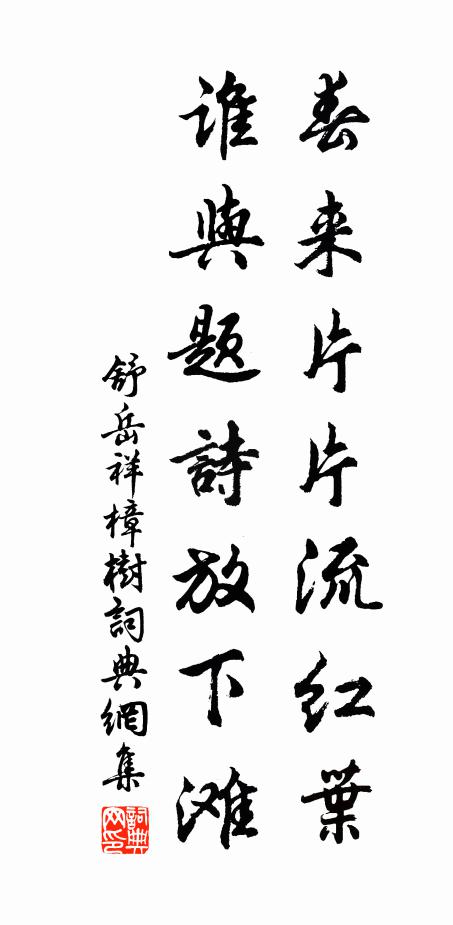 春来片片流红葉
誰與题詩放下滩
舒岳祥樟樹詞典網集
詞典网印